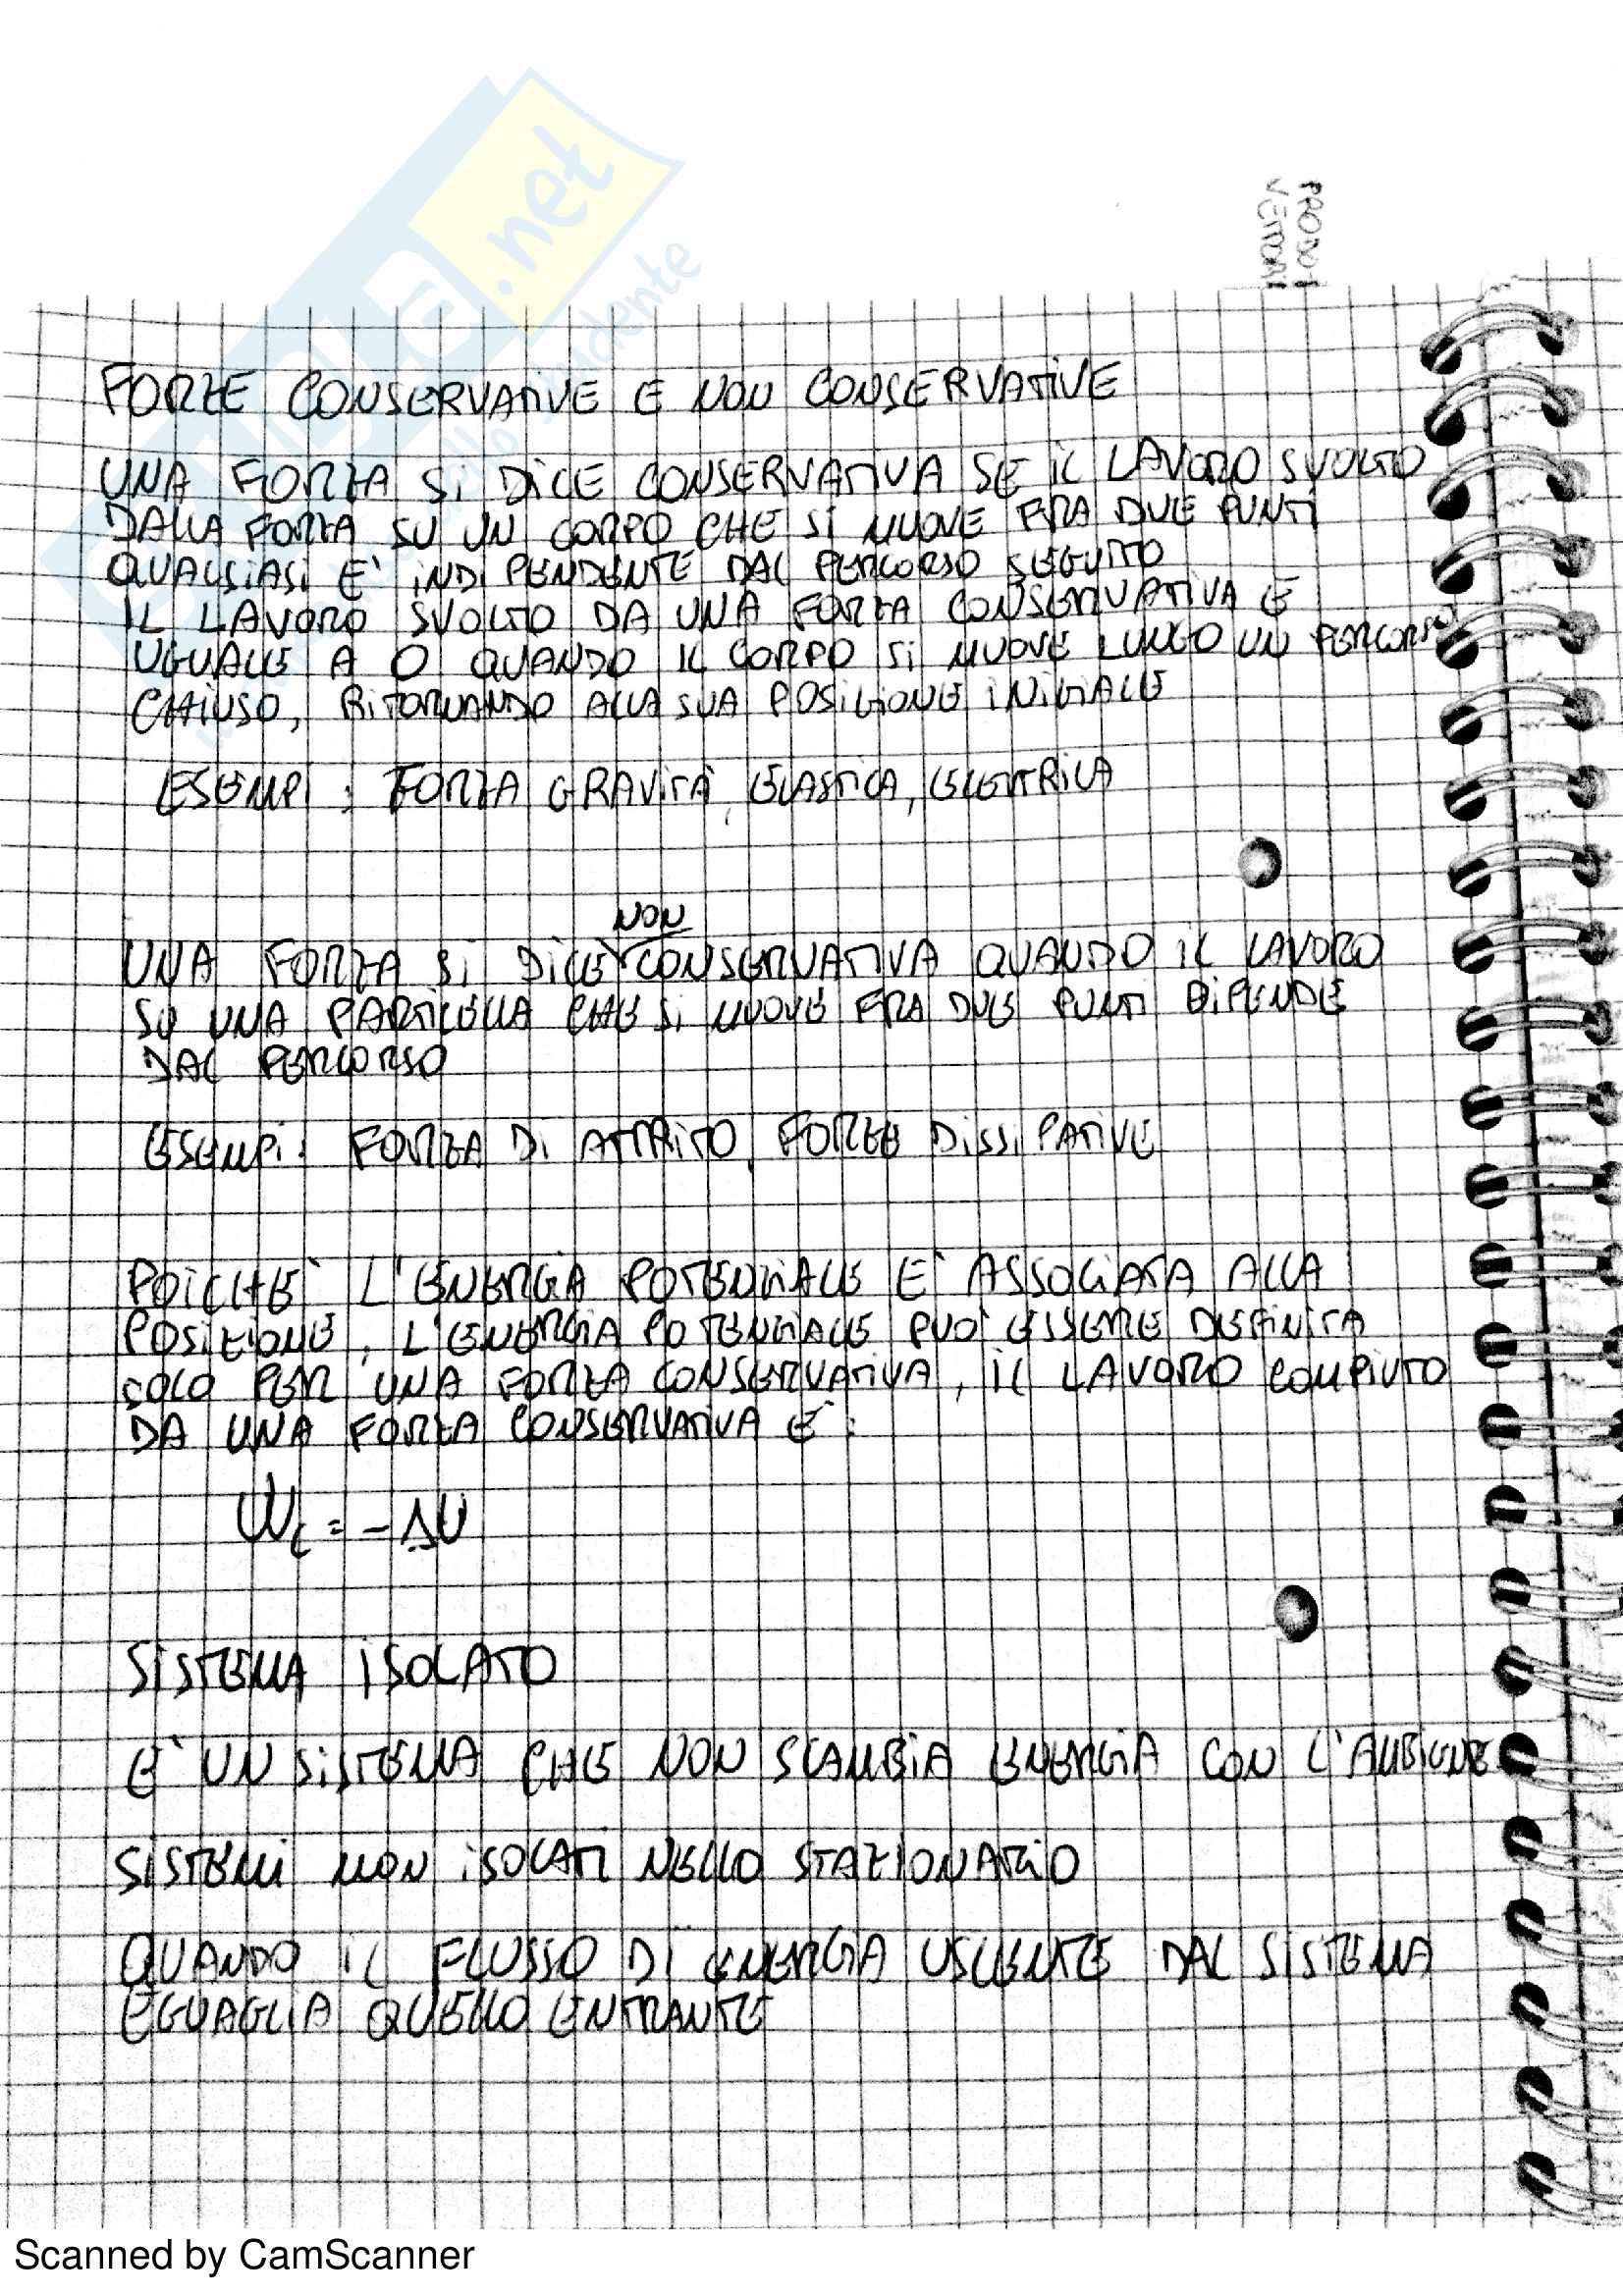 PRODOTTI
VETTORI
FORZE CONSERVATIVE E NON CONSERVATIVE
UNA FORZA SI DICE CONSERVATIVA SE IL LAVORO SVOLTO
DALLA FORZA SU UN CORPO CHE SI MUOVE FRA DUE PUNTI
QUALSIASI E' INDIPENDENTE DAL PERCORSO SEGUITO
IL LAVORO SVOLTO DA UNA FORZA CONSERVATIVA E
UGUALE A 0 QUANDO IL CORPO SI MUOVE LUNGO UN PERCORSO
CHIUSO, RITORNANDO ALLA SUA POSIZIONE INIZIALE
ESEMPI: FORZA GRAVITÀ, ELASTICA, ELETTRICA
UNA FORZA SI DICE NON CONSERVATIVA QUANDO IL LAVORO
SU UNA PARTICELLA CHE SI MUOVE FRA DUE PUNTI DIPENDE
DAL PERCORSO
ESEMPI: FORZA DI ATTRITO, FORZE DISSIPATIVE
POICHE' L'ENERGIA POTENZIALE E' ASSOCIATA ALLA
POSIZIONE, L'ENERGIA POTENZIALE PUO' ESSERE DEFINITA
SOLO PER UNA FORZA CONSERVATIVA, IL LAVORO COMPIUTO
DA UNA FORZA CONSERVATIVA E':
Wc = - ΔU
SISTEMA ISOLATO
E' UN SISTEMA CHE NON SCAMBIA ENERGIA CON L'AMBIENTE
SISTEMI NON ISOLATI NELLO STAZIONARIO
QUANDO IL FLUSSO DI ENERGIA USCENTE DAL SISTEMA
EGUAGLIA QUELLO ENTRANTE
Scanned by CamScanner